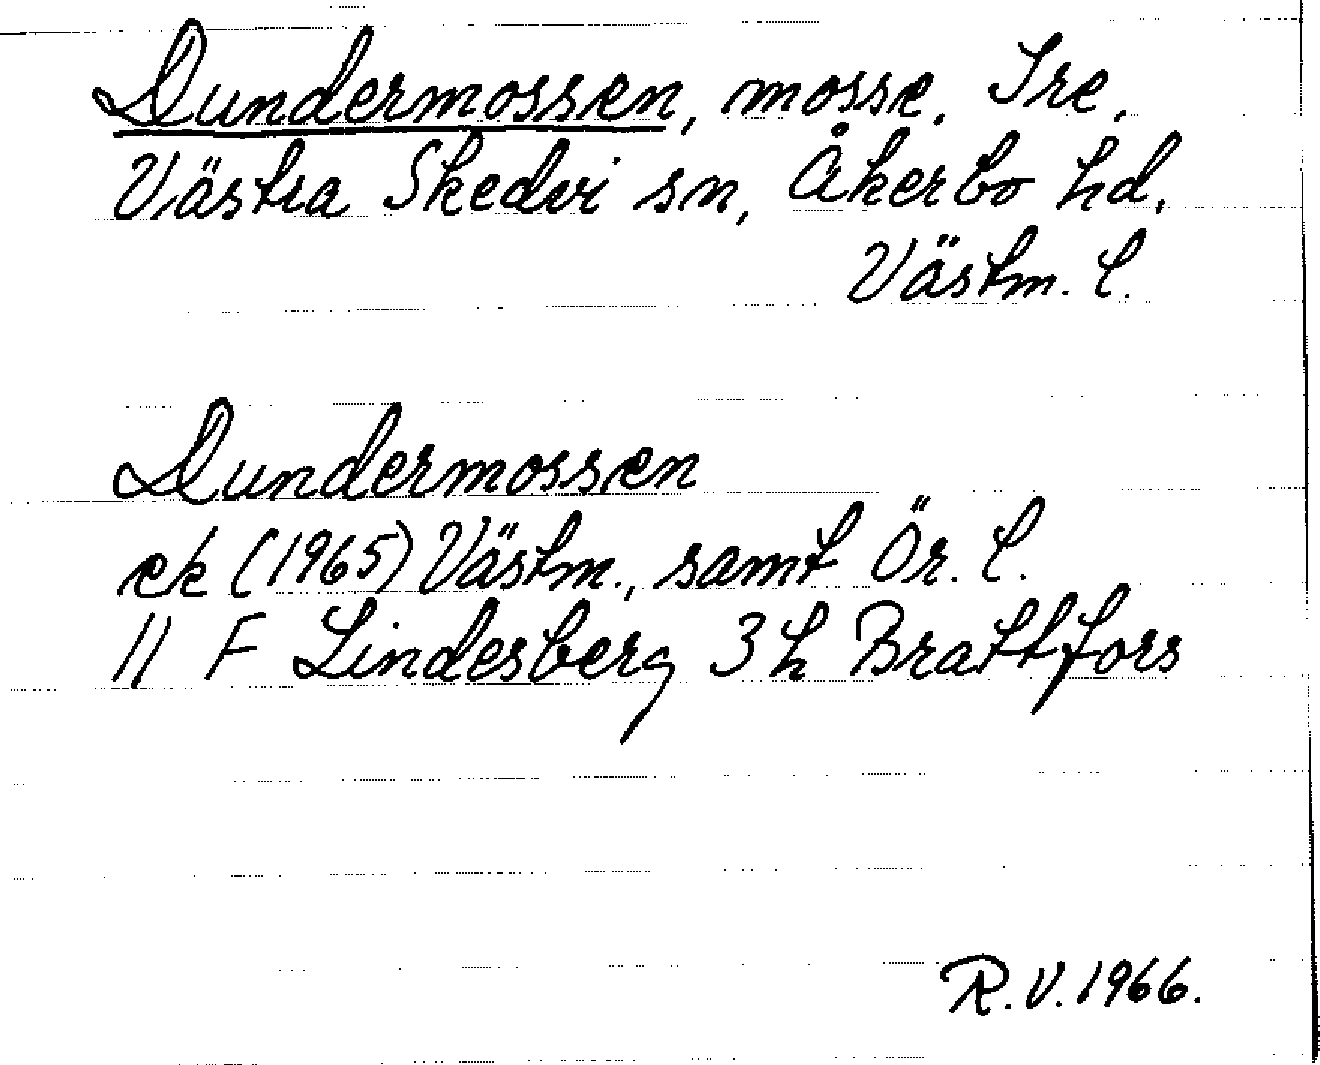 Dundermossen, mosse. Tre,
Västra Skedvi sn, Åkerbo hd.
Västm. l.
Dundermossen
ek (1965) Västm., samt Ör. l.
11 F Lindesberg 3 h Brattfors
R.V. 1966.